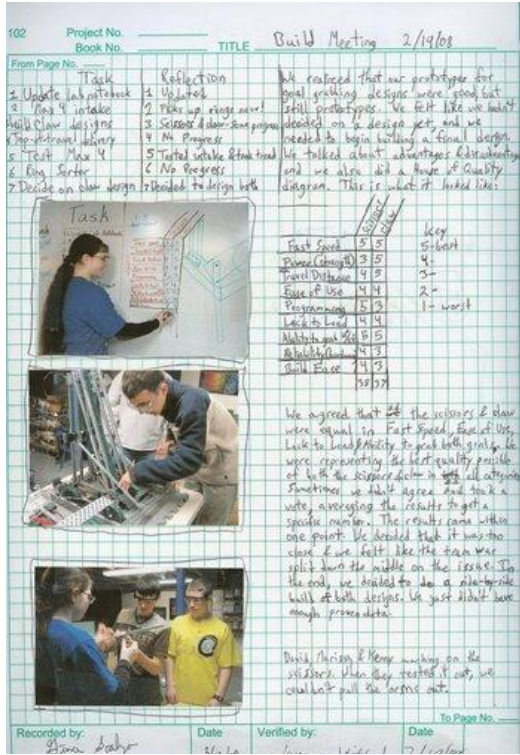 102 Project No.
Book No. TITLE Build Meeting 2/19/08
From Page No.
Task
1 Update Lab notebook
2 Max 4 intake
Build claw designs
4 Top-of-travel delivery
5 Test Max 4
6 Ring Sorter
7 Decide on claw design
Reflection
1 Updated
2 Picks up rings now!
3 Scissors & claw - Some progress
4 No Progress
5 Tested intake & tank tread
6 No Progress
7 Decided to design both
We realized that our prototypes for
goal grabing designs were good, but
still prototypes. We felt like we hadn't
decided on a design yet, and we
needed to begin building a final design.
We talked about advantages & disadvantages
and we also did a House of Quality
diagram. This is what it looked like:
Task
Scissor claw
Fast Speed 5 5
Power (strength) 3 5
Travel Distance 4 5
Ease of Use 4 4
Programming 5 3
Lack to Load 4 4
Ability to grab 5 5
Reliability 4 3
Build Ease 4 3
38 37
Key
5-best
4-
3-
2-
1-worst
We agreed that the scissors & claw
were equal in Fast Speed, Ease of Use,
Lack to Load & Ability to grab both goals. We
were representing the best quality possible
of both the scissors & claw in all categories
Sometimes we didn't agree and took a
vote, averaging the results to get a
specific number. The results came within
one point. We decided that it was too
close & we felt like the team was
split down the middle on the issue. In
the end, we decided to do a side-by-side
build of both designs. We just didn't have
enough proven data.
David, Marissa & Kenny working on the
scissors. When they tested it out, we
couldn't pull the arms out.
To Page No.
Recorded by: Date Verified by: Date